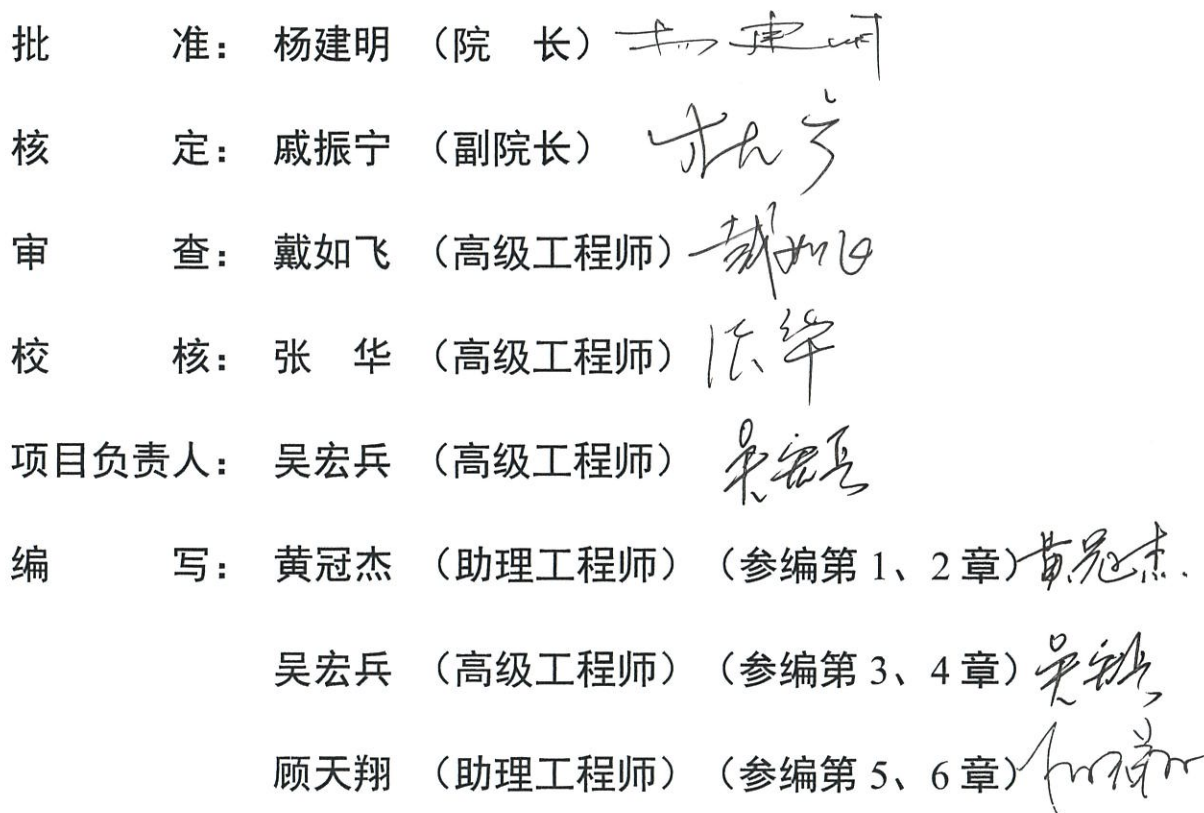 批 准： 杨建明 （院 长） 杨建明
核 定： 戚振宁 （副院长）
审 查： 戴如飞 （高级工程师） 戴如飞
校 核： 张 华 （高级工程师） 张华
项目负责人： 吴宏兵 （高级工程师） 吴宏兵
编 写： 黄冠杰 （助理工程师） （参编第 1、2 章） 黄冠杰
吴宏兵 （高级工程师） （参编第 3、4 章） 吴宏兵
顾天翔 （助理工程师） （参编第 5、6 章）